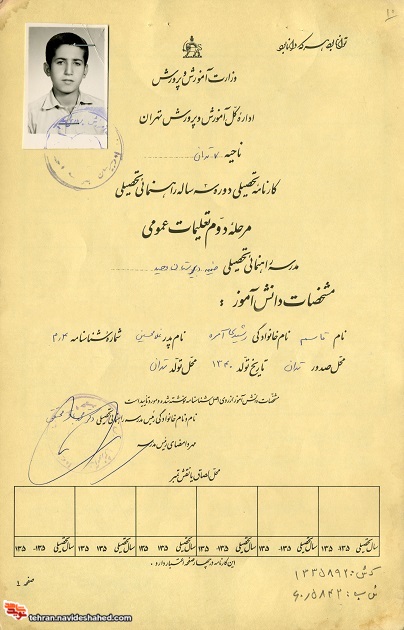 توانا بود هر که دانا بود
وزارت آموزش و پرورش
ادارهٔ کل آموزش و پرورش تهران
ناحیه ۷ تهران
کارنامه تحصیلی دوره سه ساله راهنمائی تحصیلی
مرحلهٔ دوم تعلیمات عمومی
مدرسه راهنمائی تحصیلی وحید
مشخصات دانش آموز :
نام قاسم نام خانوادگی نام پدر غلامحسین شماره شناسنامه ۲۰۴
محل صدور تهران تاریخ تولد ۱۳۴۰ محل تولد تهران
مشخصات دانش آموز از روی اصل شناسنامه نوشته شده و مورد تایید است
نام و نام خانوادگی رئیس مدرسه راهنمائی تحصیلی
مهر و امضای رئیس مدرسه
محل الصاق یا نقش تمبر
سال تحصیلی ۱۳۵ - ۱۳۵ سال تحصیلی ۱۳۵ - ۱۳۵ سال تحصیلی ۱۳۵ - ۱۳۵ سال تحصیلی ۱۳۵ - ۱۳۵ سال تحصیلی ۱۳۵ - ۱۳۵ سال تحصیلی ۱۳۵ - ۱۳۵
این کارنامه در چهار صفحه اعتبار دارد .
صفحه ۱
۱۳۳۵۸۹۲
۶۰۵۸۴۲
tehran.navideshahed.com